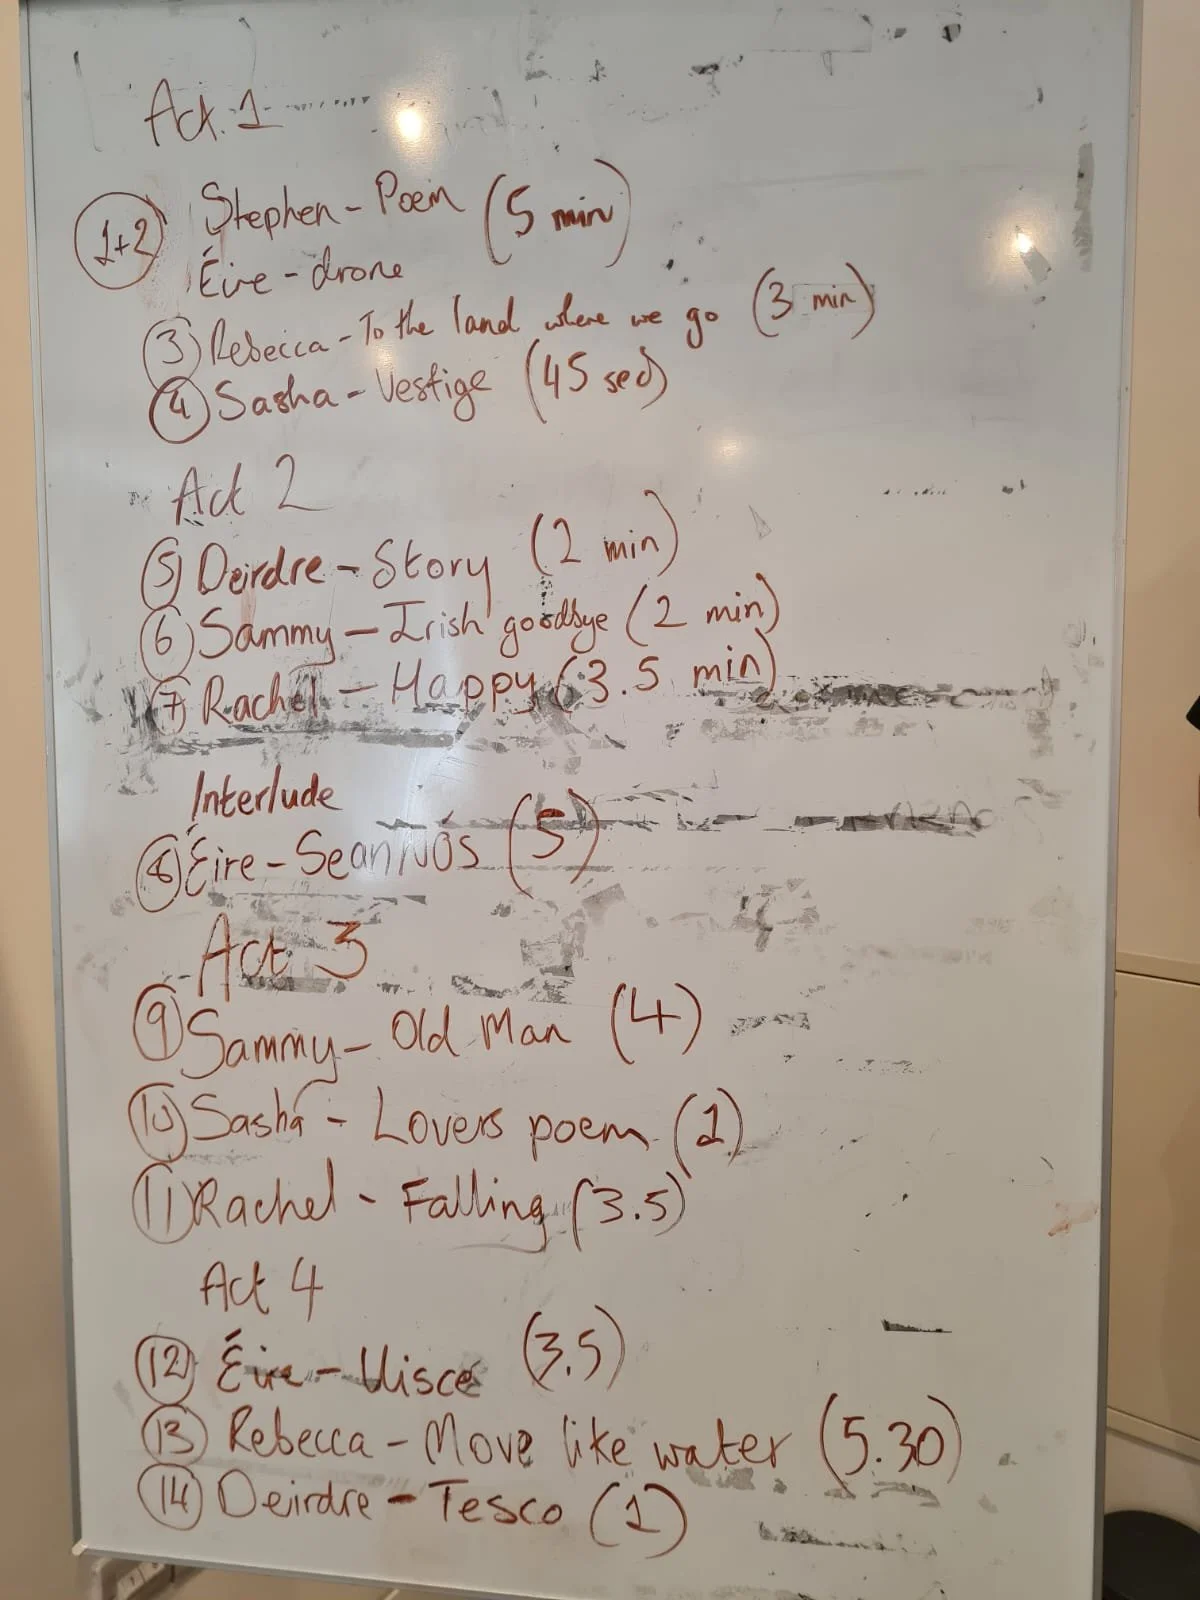 Act 1
1+2 Stephen - Poem (5 min)
Éire - drone
3 Rebecca - To the land where we go (3 min)
4 Sasha - Vestige (45 sec)
Act 2
5 Deirdre - Story (2 min)
6 Sammy - Irish goodbye (2 min)
7 Rachel - Happy (3.5 min)
Interlude
8 Éire - Sean Nós (5)
Act 3
9 Sammy - Old Man (4)
10 Sasha - Lovers poem (1)
11 Rachel - Falling (3.5)
Act 4
12 Éire - Uisce (3.5)
13 Rebecca - Move like water (5.30)
14 Deirdre - Tesco (1)